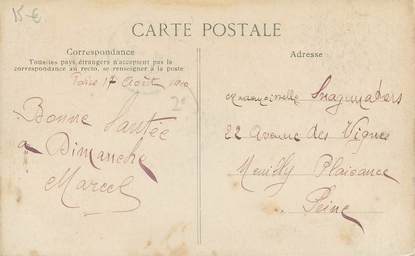 15 €
CARTE POSTALE
Correspondance
Tous les pays étrangers n'acceptent pas la
correspondance au recto, se renseigner à la poste
Paris 17 Août
Bonne Santée
a Dimanche
Marcel
Adresse
Mademoiselle
22 Avenue des Vignes
Neuilly Plaisance
Seine